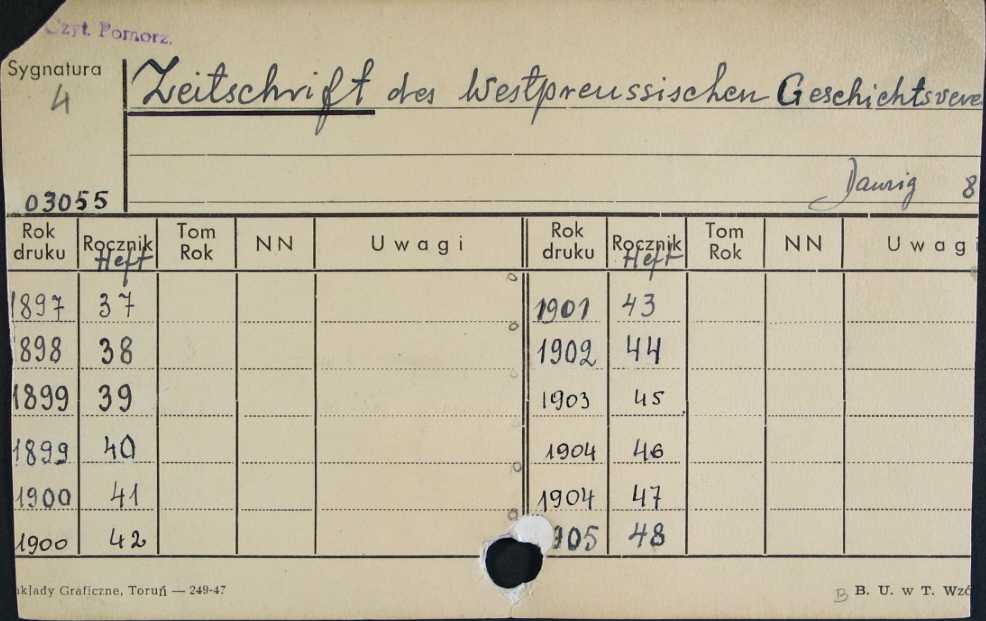 Czyt. Pomorz.
Sygnatura
4
Zeitschrift des Westpreussischen Geschichtsvere
Danzig 8
03055
Rok druku Rocznik Heft Tom Rok NN Uwagi Rok druku Rocznik Heft Tom Rok NN Uwagi
1897 37 1901 43
898 38 1902 44
1899 39 1903 45
1899 40 1904 46
1900 41 1904 47
1900 42 905 48
akłady Graficzne, Toruń — 249-47 B B. U. w T. Wzó